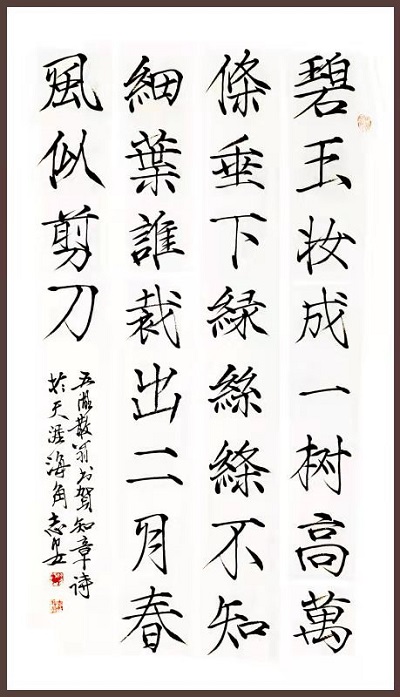 碧玉妆成一树高萬
條垂下緑絲絛不知
細葉誰裁出二月春
風似剪刀
五湖散翁书賀知章诗
於天涯海角志